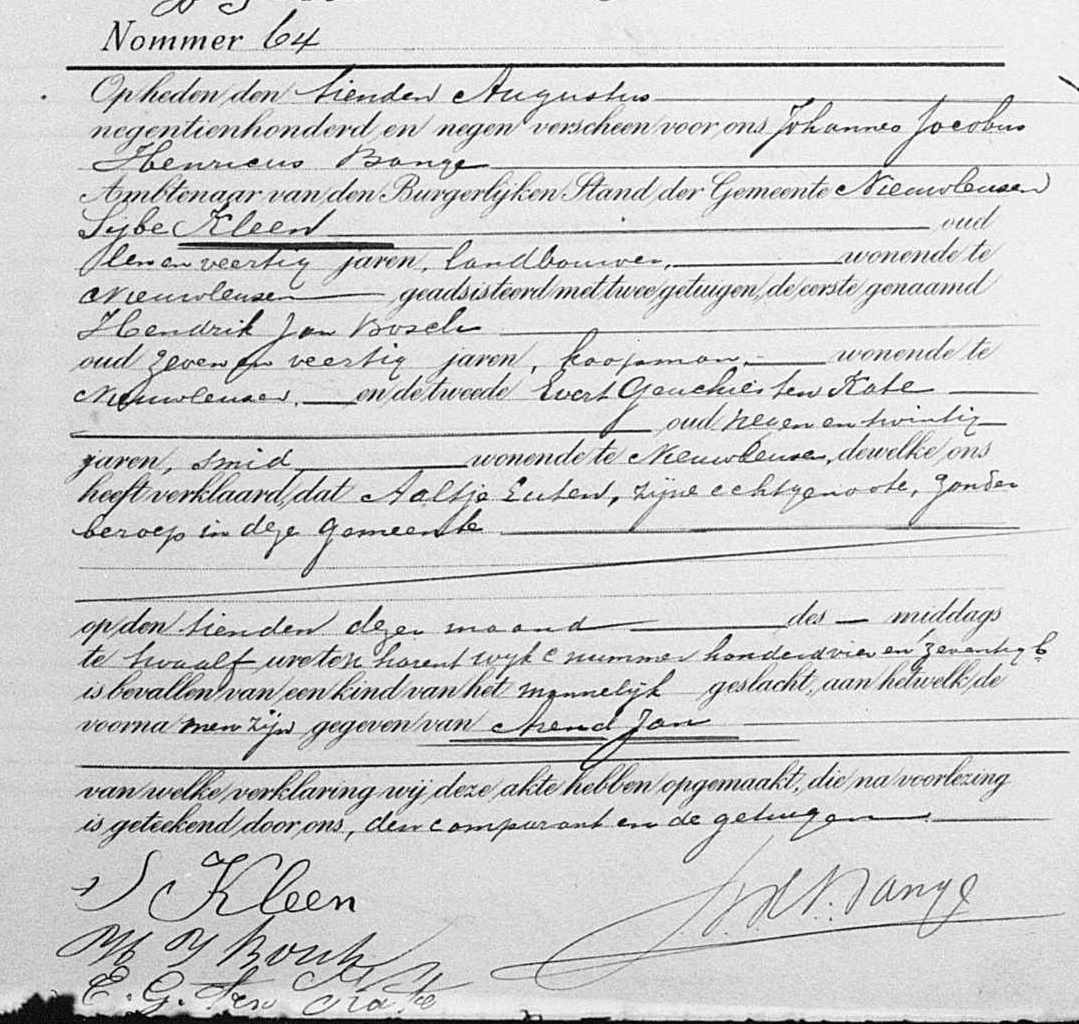 Nommer 64
Op heden den tienden Augustus
negentienhonderd en negen verscheen voor ons Johannes Jacobus
Henricus Bange
Ambtenaar van den Burgerlijken Stand der Gemeente Nieuwleusen
Sijbe Kleen oud
een veertig jaren, landbouwer, wonende te
Nieuwleusen geadsisteerd met twee getuigen, de eerste genaamd
Hendrik Jan Bosch
oud zeven en veertig jaren, koopman, wonende te
Nieuwleusen, en de tweede Evert ten Kate
oud negen en twintig
jaren, smid, wonende te Nieuwleusen, dewelke ons
heeft verklaard, dat Aaltje zijne echtgenoote, zonder
beroep in deze gemeente
op den tienden dezer maand des middags
te twaalf ure ten harent wijk C nummer honderd vier en zeventig b
is bevallen van een kind van het mannelijk geslacht, aan hetwelk de
voornamen zijn gegeven van Arend Jan
van welke verklaring wij deze akte hebben opgemaakt, die na voorlezing
is geteekend door ons, den comparant en de getuigen.
S Kleen
H J Bosch
E. G. Ten Kate
Bange